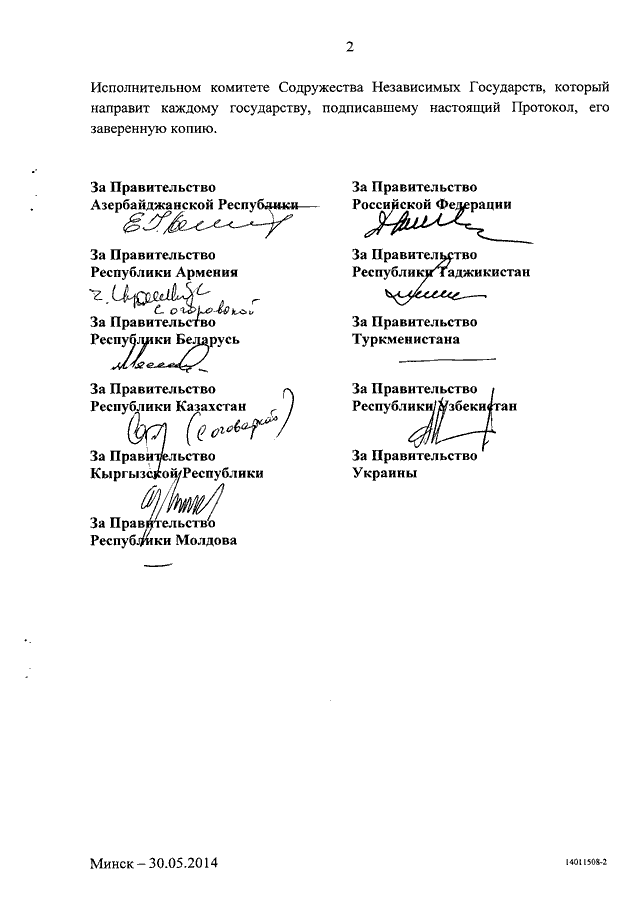 2
Исполнительном комитете Содружества Независимых Государств, который
направит каждому государству, подписавшему настоящий Протокол, его
заверенную копию.
За Правительство
Азербайджанской Республики
За Правительство
Республики Армения
с оговоркой
За Правительство
Республики Беларусь
За Правительство
Республики Казахстан
(с оговоркой)
За Правительство
Кыргызской Республики
За Правительство
Республики Молдова
За Правительство
Российской Федерации
За Правительство
Республики Таджикистан
За Правительство
Туркменистана
За Правительство
Республики Узбекистан
За Правительство
Украины
Минск – 30.05.2014
14011508-2